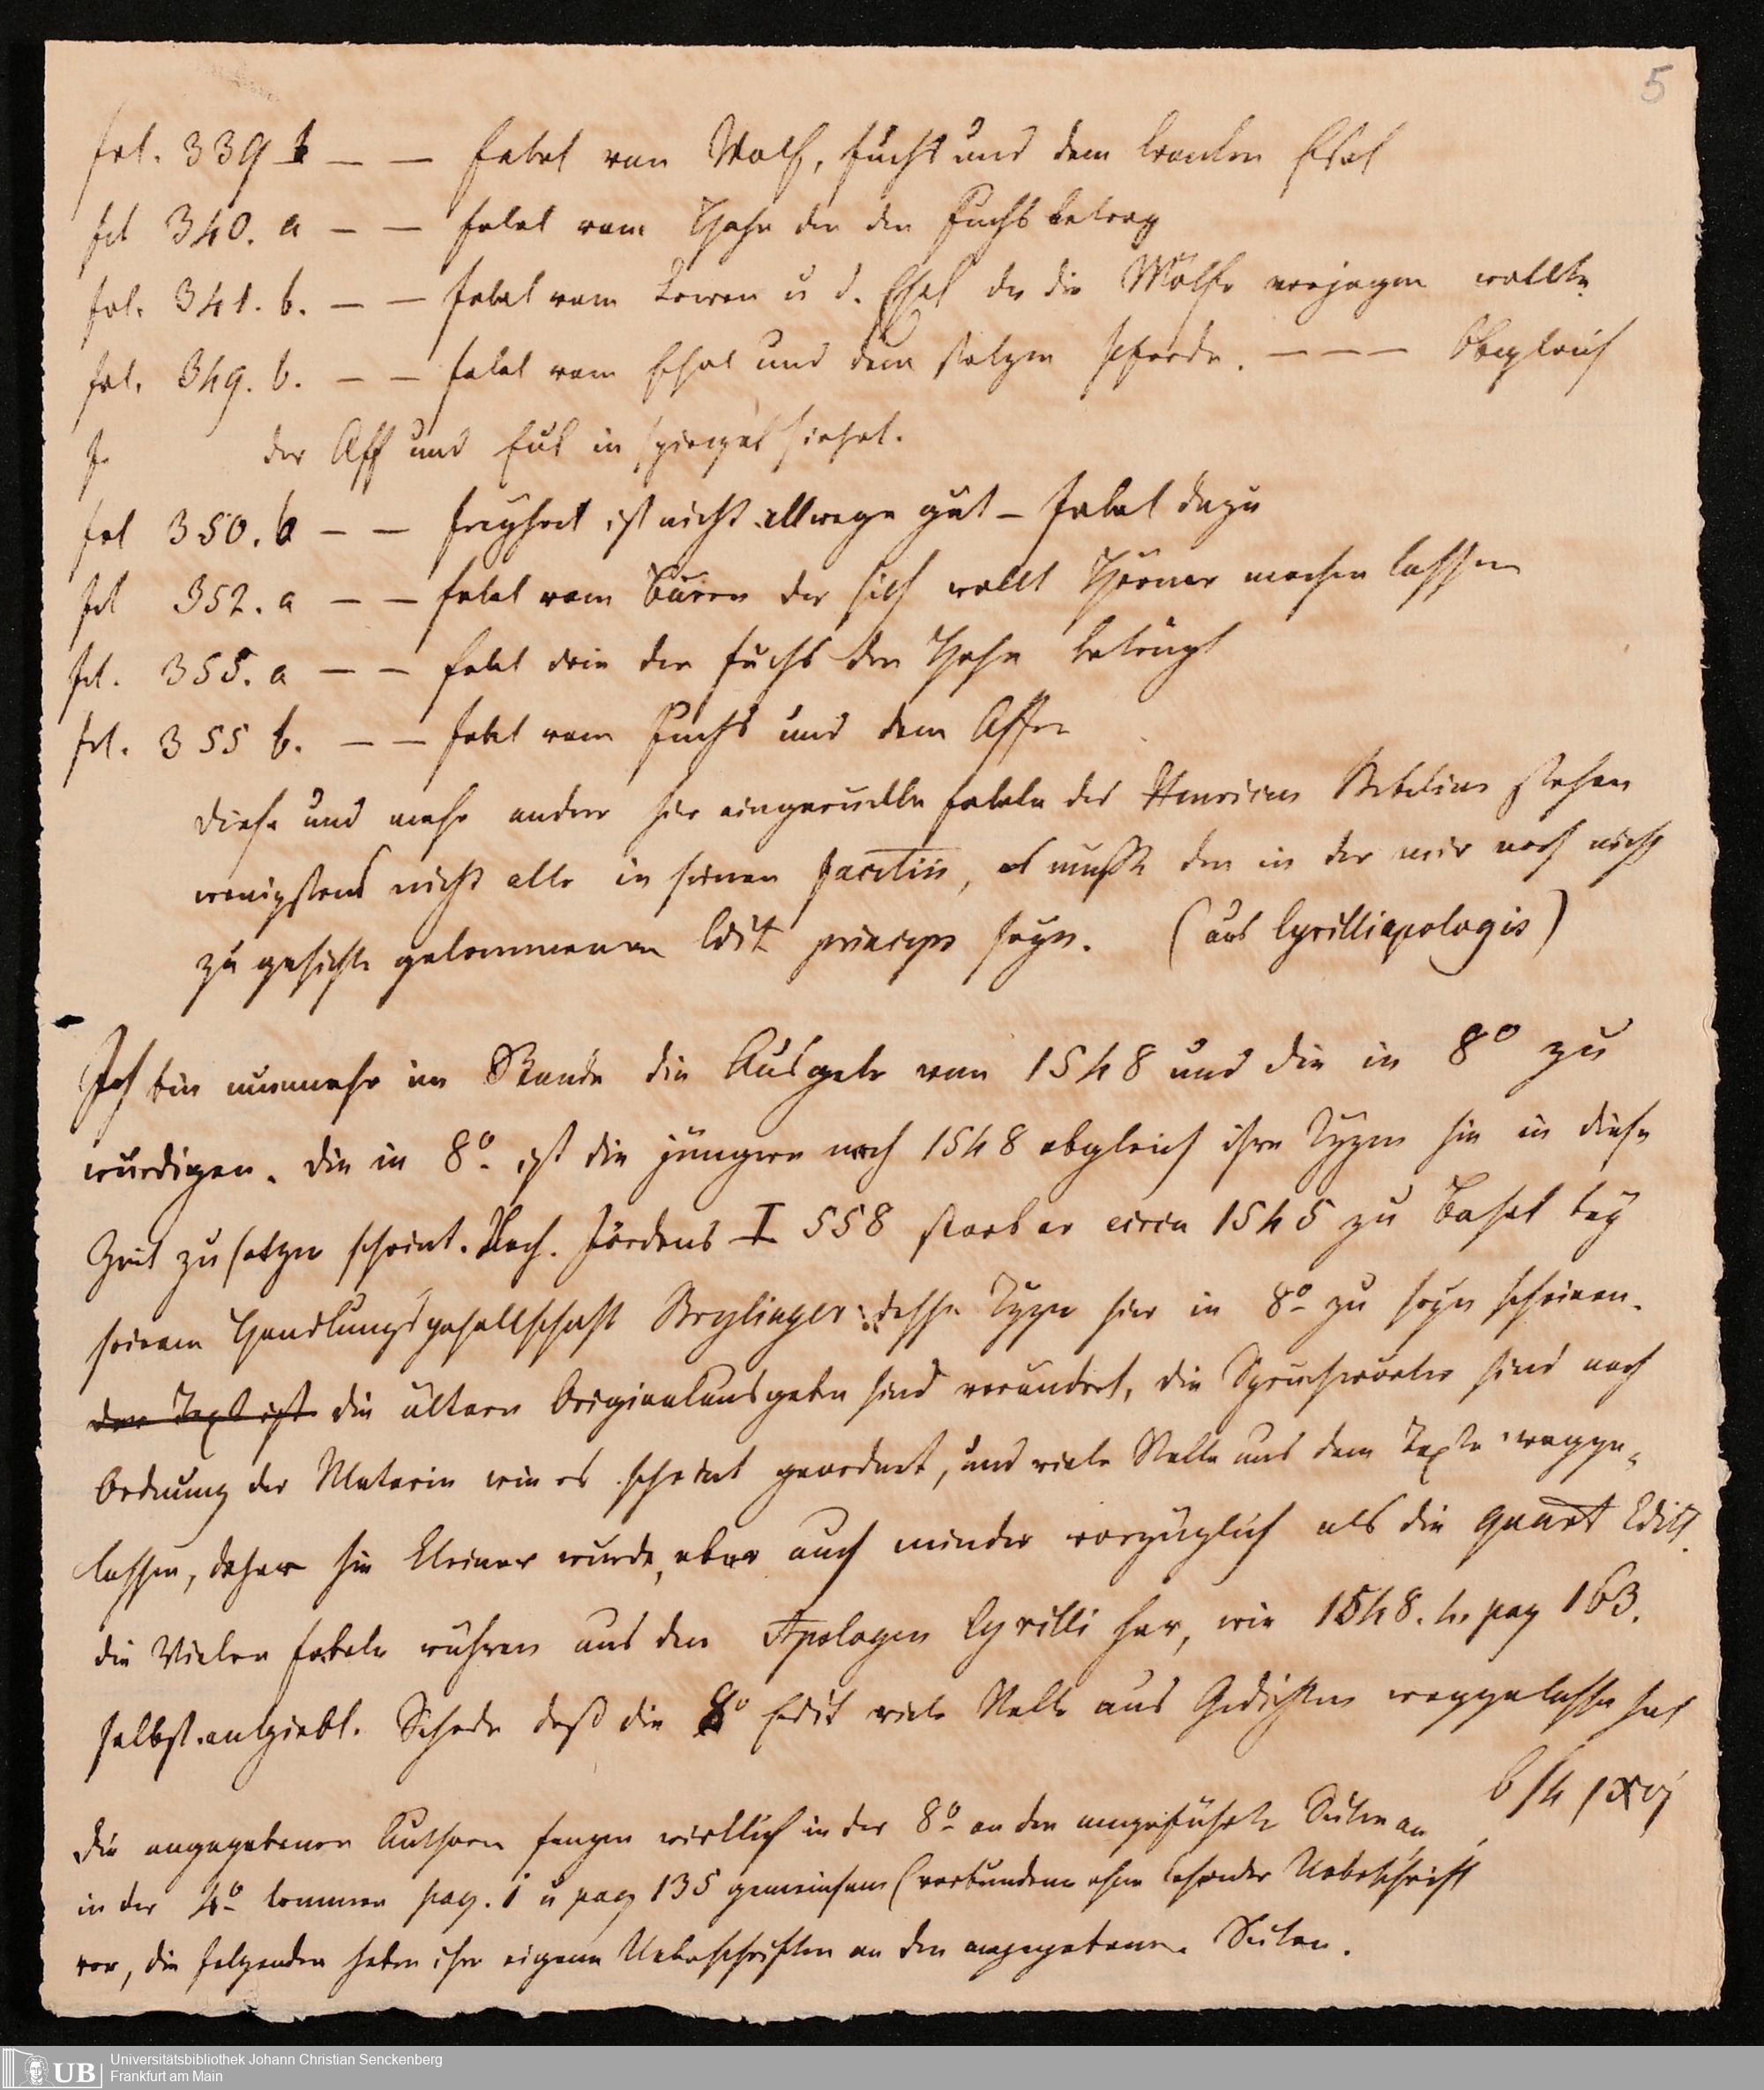 5
fol. 339 b — — Fabel von Wolf, Fuchs und dem kranken Esel
fol 340. a — — Fabel vom Hahn der den Fuchs betrog
fol. 341. b. — — Fabel vom Lowen u d. Esel der die Wölfe verjagen wollte
fol. 349. b. — — Fabel vom Esel und dem stolzen Pferde. — — — Obgleich
f. der Aff und Eul in spiegel siehet.
fol 350. b — — Freyheit ist nicht allwege gut – Fabel dazu
fol 352. a — — Fabel vom Bären der sich wollt Hörner machen lassen
fol. 355. a — — Fabel drin der Fuchs den Hahn betrügt
fol. 355 b. — — Fabel vom Fuchs und dem Affen
diese und mehr andere hier eingeruckte Fabeln des Henricus Bebelius stehen
wenigstens nicht alle in seinen Facetiis, es musste den in der mir noch nicht
zu gesichte gekommenen Edit princeps seyn. (aus Cyrilli apologis)
Ich bin nunmehr im Stande die Ausgabe von 1548 und die in 8o zu
würdigen. die in 8o. ist die jüngere nach 1548 obgleich ihre Typen sie in diese
Zeit zu setzen scheint. Nach Jördens I 558 starb er circa 1545 zu Basel bey
seinem Handlungsgesellschaft Brylinger dessen Typen hier in 8o zu seyn scheinen.
der Text ist die ältern Originalausgaben sind verändert, die Spruchwörter sind nach
Ordnung der Materie wie es scheint geordnet, und viele Stellen aus dem Texte wegge-
lassen, daher sie kleiner wurde, aber auch minder vorzüglich als die Quart Edit.
die Vielen Fabeln rühren aus den Apologen Cyrilli her, wie 1548. 4. pag 163.
selbst angiebt. Schade daß die 8o Edit viele Stellen aus Gedichten weggelassen hat
die angegebenen Authoren fangen wirklich in der 8o an den angeführten Seiten an
in der 4o kommen pag. 1 u pag 135 gemeinsam (verbunden ohne Ueberschrift
vor, die folgenden haben ihre eigene Ueberschriften an den angegebenen Seiten.
UB Universitätsbibliothek Johann Christian Senckenberg
Frankfurt am Main